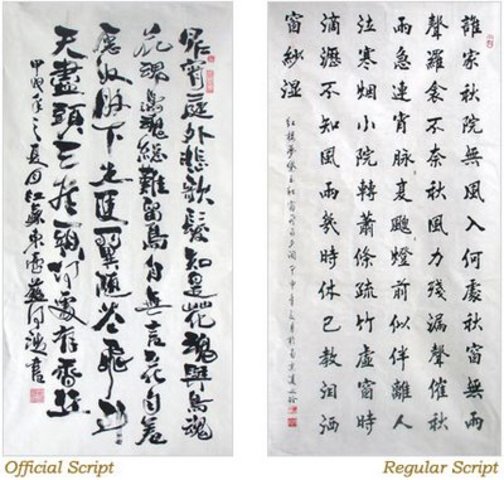 昨宵庭外悲歌發知是花魂與鳥魂
花魂鳥魂總難留鳥自無言花自羞
願奴脇下生雙翼隨花飛到
天盡頭天盡頭何處有香丘
甲戌年之夏月紅
Official Script
誰家秋院無風入何處秋窗無雨
聲羅衾不奈秋風力殘漏聲催秋
雨急連宵脉复颼燈前似伴離人
泣寒烟小院轉蕭條疏竹虛窗時
滴瀝不知風雨幾時休已教泪洒
窗紗湿
紅樓夢
Regular Script